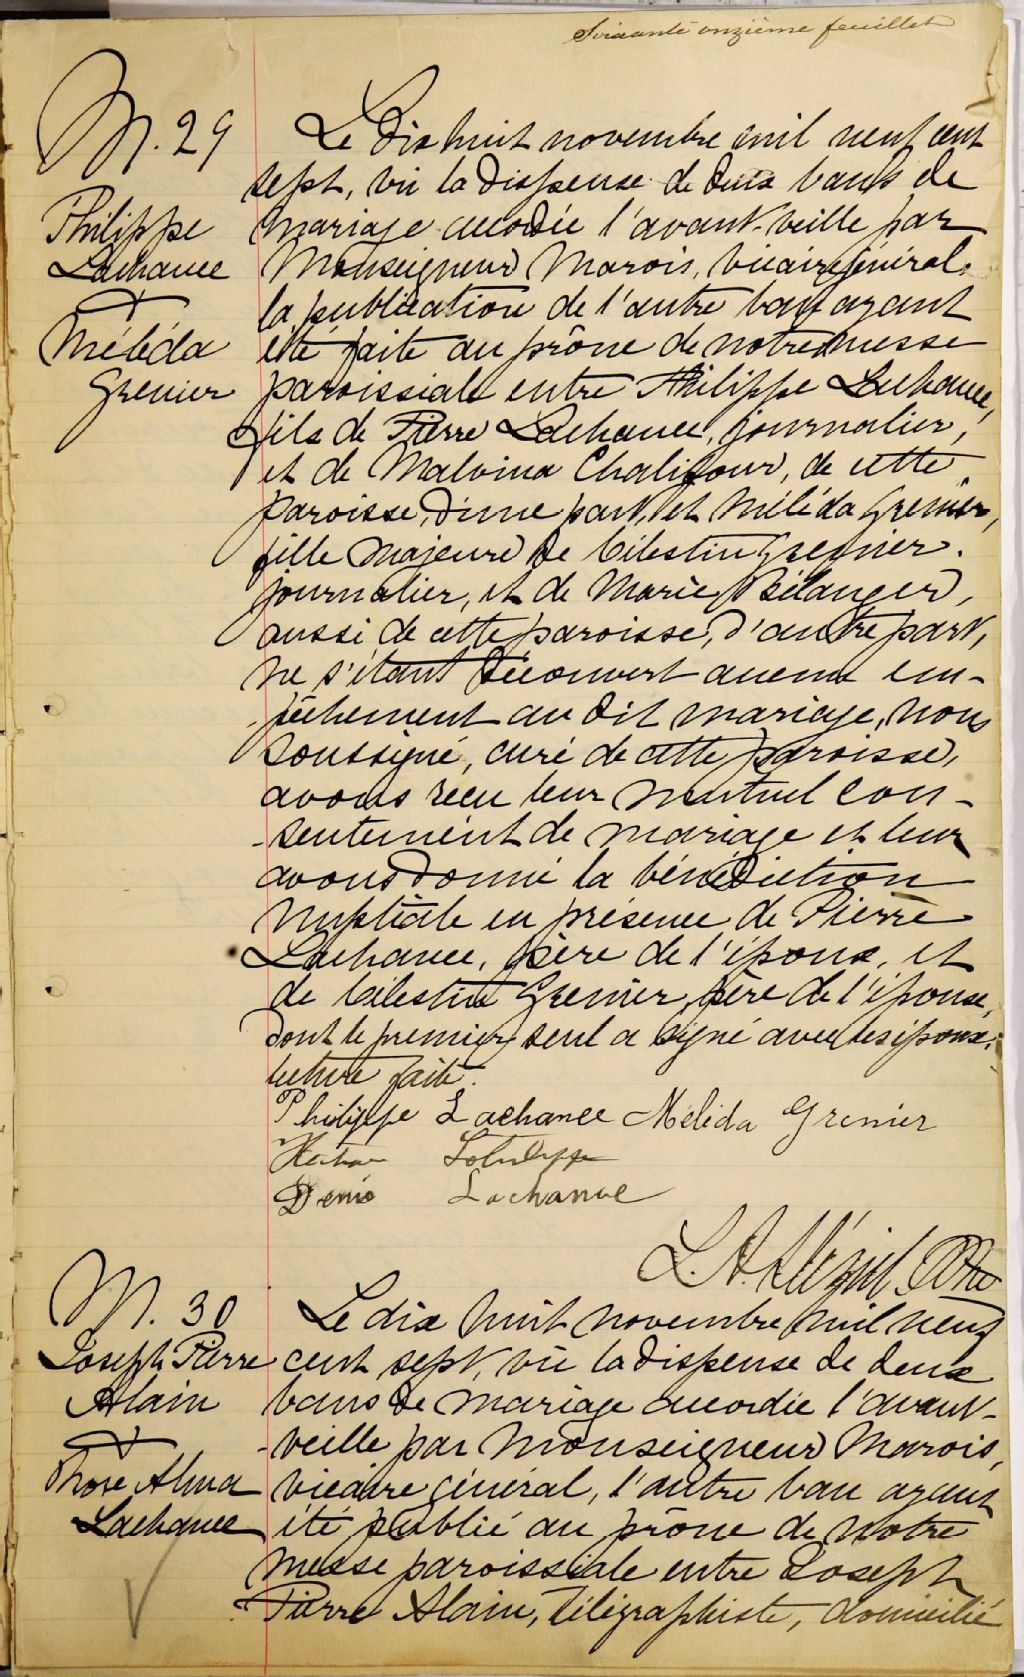 Soixante onzième feuillet
M. 29
Philippe
Lachance
&
Méléda
Grenier
Le dix huit novembre mil neuf cent
sept, vu la dispense de deux bans de
mariage accordée l'avant-veille par
Monseigneur Marois, vicaire général,
la publication de l'autre ban ayant
été faite au prône de notre messe
paroissiale entre Philippe Lachance,
fils de Pierre Lachance, journalier,
et de Malvina Chalifour, de cette
paroisse, d'une part, et Méléda Grenier,
fille majeure de Célestin Grenier,
journalier, et de Marie Bélanger,
aussi de cette paroisse, d'autre part,
ne s'étant découvert aucun em-
-pêchement au dit mariage, nous
soussigné, curé de cette paroisse,
avons reçu leur mutuel con-
-sentement de mariage et leur
avons donné la bénédiction
nuptiale en présence de Pierre
Lachance, père de l'époux, et
de Célestin Grenier, père de l'épouse,
dont le premier seul a signé avec les époux.
lecture faite.
Philippe Lachance Méléda Grenier
Denis Lachance
L. A.
M. 30
Joseph Pierre
Alain
&
Rose Alma
Lachance
Le dix huit novembre mil neuf
cent sept, vu la dispense de deux
bans de mariage accordée l'avant-
-veille par Monseigneur Marois,
vicaire général, l'autre ban ayant
été publié au prône de notre
messe paroissiale entre Joseph
Pierre Alain, télégraphiste, domicilié